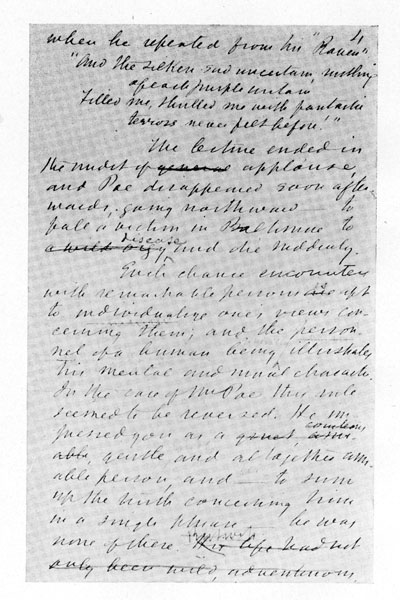 4
when he repeated from his "Raven"
"And the silken sad uncertain rustling
of each purple curtain
Filled me, thrilled me with fantastic
terrors never felt before!"
The lecture ended in
the midst of general applause,
and Poe disappeared soon after-
wards, going northward to
fall a victim in Baltimore to
a wild orgy disease, and die suddenly.
Such chance encounters
with remarkable persons are apt
to individualize one's views con-
cerning them; and the person-
nel of a human being illustrates
his mental and moral character.
In the case of Mr Poe this rule
seemed to be reversed. He im-
pressed you as a quiet, courteous
able, gentle and altogether ami-
able person, and — to sum
up the truth concerning him
in a single phrase — he was
none of these. His life had not
only been wild, adventurous